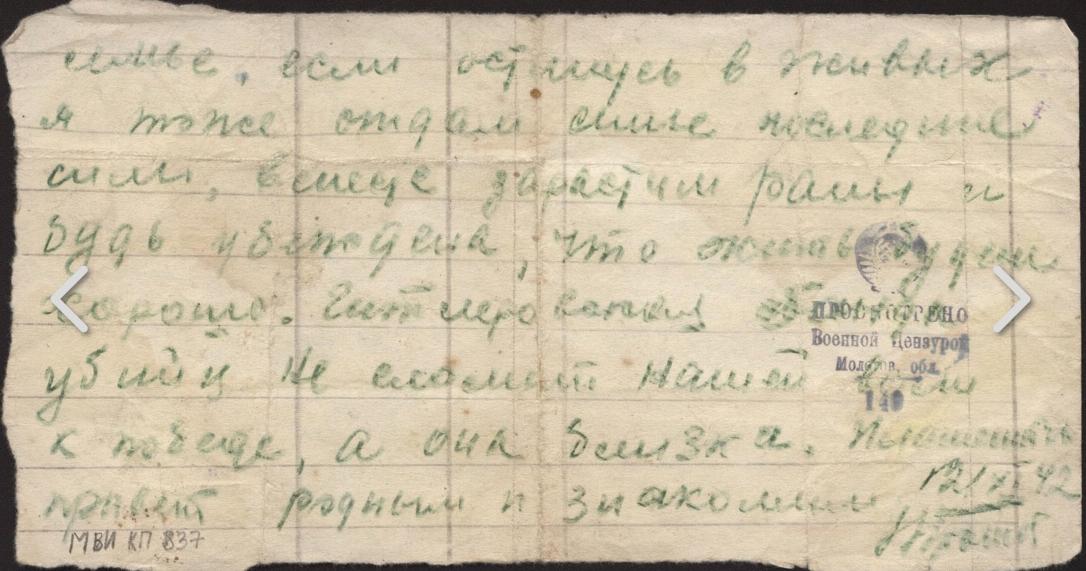 семье, если останусь в живых
я тоже отдам семье последние
силы, вместе зарастим раны и
будь убеждена, что жить будем
хорошо. Гитлеровская
убийц не сломит нашей воли
к победе, а она близка.
привет родным и знакомым 12/XI 42
ПРОСМОТРЕНО
Военной Цензурой
Молотов. обл.
140
МВИ КП 837